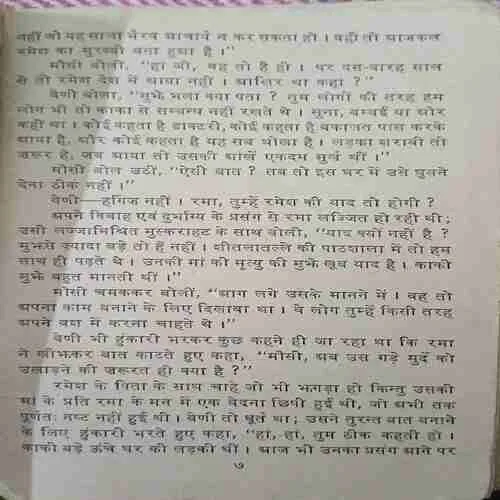 नहीं जो यह साला भैरव आचार्य न कर सकता हो । वही तो आजकल
रमेश का मुरब्बी बना हुआ है ।"
मौसी बोलीं, "हां जी, वह तो है ही । पर दस-बारह साल
से तो रमेश देश में आया नहीं । आखिर था कहां ?"
वेणी बोला, "मुझे भला क्या पता ? तुम लोगों की तरह हम
लोग भी तो काका से सम्बन्ध नहीं रखते थे । सुना, बम्बई या और
कहीं था । कोई कहता है डाक्टरी, कोई कहता है वकालत पास करके
आया है, और कोई कहता है यह सब धोखा है । लड़का शराबी तो
जरूर है, जब आया तो उसकी आंखें एकदम सुर्ख थीं ।"
मौसी बोल उठीं, "ऐसी बात ? तब तो इस घर में उसे घुसने
देना ठीक नहीं ।"
वेणी—हर्गिज नहीं । रमा, तुम्हें रमेश की याद तो होगी ?
अपने विवाह एवं दुर्भाग्य के प्रसंग से रमा लज्जित हो रही थी;
उसी लज्जामिश्रित मुस्कराहट के साथ बोली, "याद क्यों नहीं है ?
मुझसे ज्यादा बड़े तो हैं नहीं । शीतलातल्ले की पाठशाला में तो हम
साथ ही पढ़ते थे । उनकी मां की मृत्यु की मुझे खूब याद है । काकी
मुझे बहुत मानती थीं ।"
मौसी चमककर बोलीं, "आग लगे उसके मानने में । वह तो
अपना काम बनाने के लिए दिलावा था । वे लोग तुम्हें किसी तरह
अपने वश में करना चाहते थे ।"
वेणी भी हुंकारी भरकर कुछ कहने ही जा रहा था कि रमा
ने खीझकर बात काटते हुए कहा, "मौसी, अब उस गड़े मुर्दे को
उखाड़ने की जरूरत ही क्या है ?"
रमेश के पिता के साथ चाहे जो भी झगड़ा हो किन्तु उसकी
मां के प्रति रमा के मन में एक वेदना छिपी हुई थी, जो अभी तक
पूर्णतः नष्ट नहीं हुई थी । वेणी तो धूर्त था; उसने तुरन्त बात बनाने
के लिए हुंकारी भरते हुए कहा, "हां, हां, तुम ठीक कहती हो ।
काकी बड़े ऊंचे घर की लड़की थीं । आज भी उनका प्रसंग आने पर
७